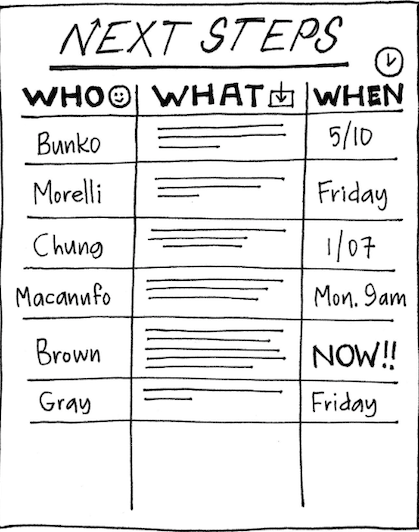 NEXT STEPS
WHO WHAT WHEN
Bunko 5/10
Morelli Friday
Chung 1/07
Macanufo Mon. 9am
Brown NOW!!
Gray Friday